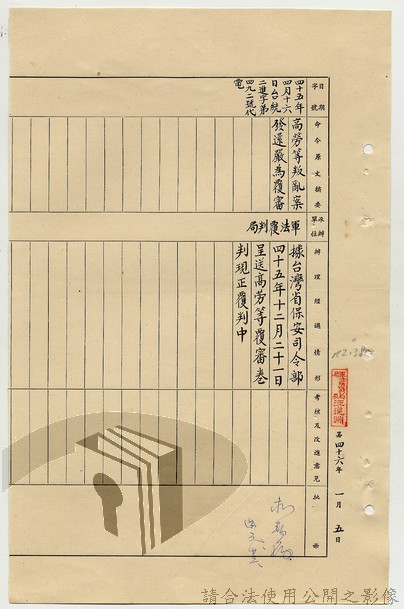 日期
字號
命令原文摘要
承辦單位
辦理經過情形
考核及改進意見
批示
四十五年
四月十六
日台統
二進字第
四九二號代
電
高勞等叛亂案
發還嚴為覆審
軍法覆判局
據台灣省保安司令部
四十五年十二月二十一日
呈送高勞等覆審卷
判現正覆判中
四十六年一月五日
請合法使用公開之影像